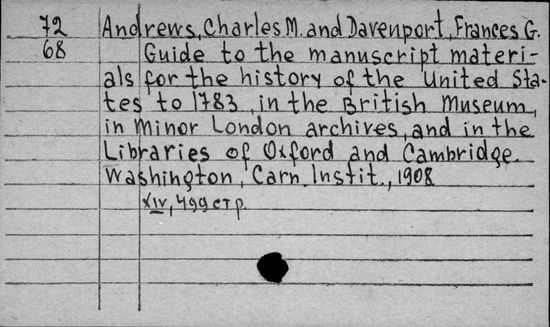 72 Andrews, Charles M. and Davenport, Frances G.
68 Guide to the manuscript materi-
als for the history of the United Sta-
tes to 1783, in the British Museum,
in Minor London archives, and in the
Libraries of Oxford and Cambridge.
Washington, Carn. Instit., 1908.
XIV, 499 стр.